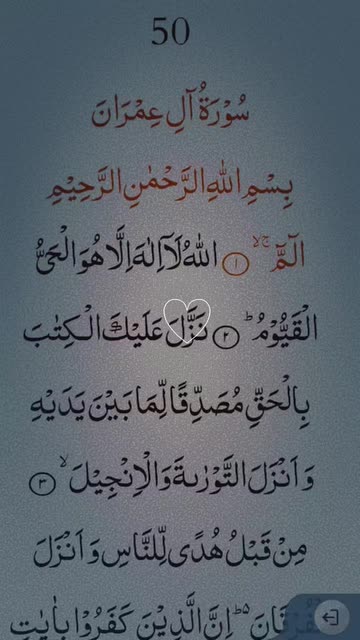 50
سُوْرَةُ آلِ عِمْرَانَ
بِسْمِ اللّٰهِ الرَّحْمٰنِ الرَّحِيْمِ
الٓمّٓ ۚۙ ۝١ اللّٰهُ لَآ اِلٰهَ اِلَّا هُوَ الْحَىُّ
الْقَيُّوْمُ ؕ ۝٢ نَزَّلَ عَلَيْكَ الْكِتٰبَ
بِالْحَقِّ مُصَدِّقًا لِّمَا بَيْنَ يَدَيْهِ
وَ اَنْزَلَ التَّوْرٰىةَ وَ الْاِنْجِيْلَ ۙ ۝٣
مِنْ قَبْلُ هُدًى لِّلنَّاسِ وَ اَنْزَلَ
اِنَّ الَّذِيْنَ كَفَرُوْا بِاٰيٰتِ